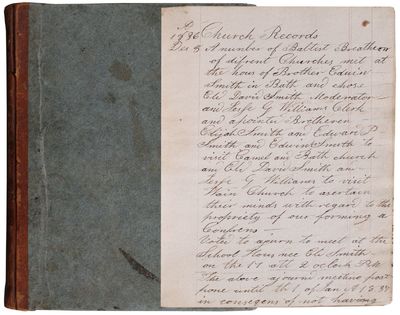 1836 Church Records
Dec 3 A number of Babtest Breatheren
of difrent Churches met at
the hous of Brother Edwin
Smith in Bath and chose
Eld Davis Smith Moderator
and Jesse G Williams Clerk
and apointed Bretheren
Elijah Smith and Edward P
Smith and Edwin Smith to
visit Camel and Bath church
and Eld Davis Smith and
Jesse G Williams to visit
Church to asertain
their minds with regard to the
propriety of our forming a
Confrens
Voted to ajourn to meet at the
School Hous nee Eld Smith
on the 17 at 2 oclock P.M.
The above ajourn meeting post
pone until th 1 of Jan A 1837
in conseqens of not having